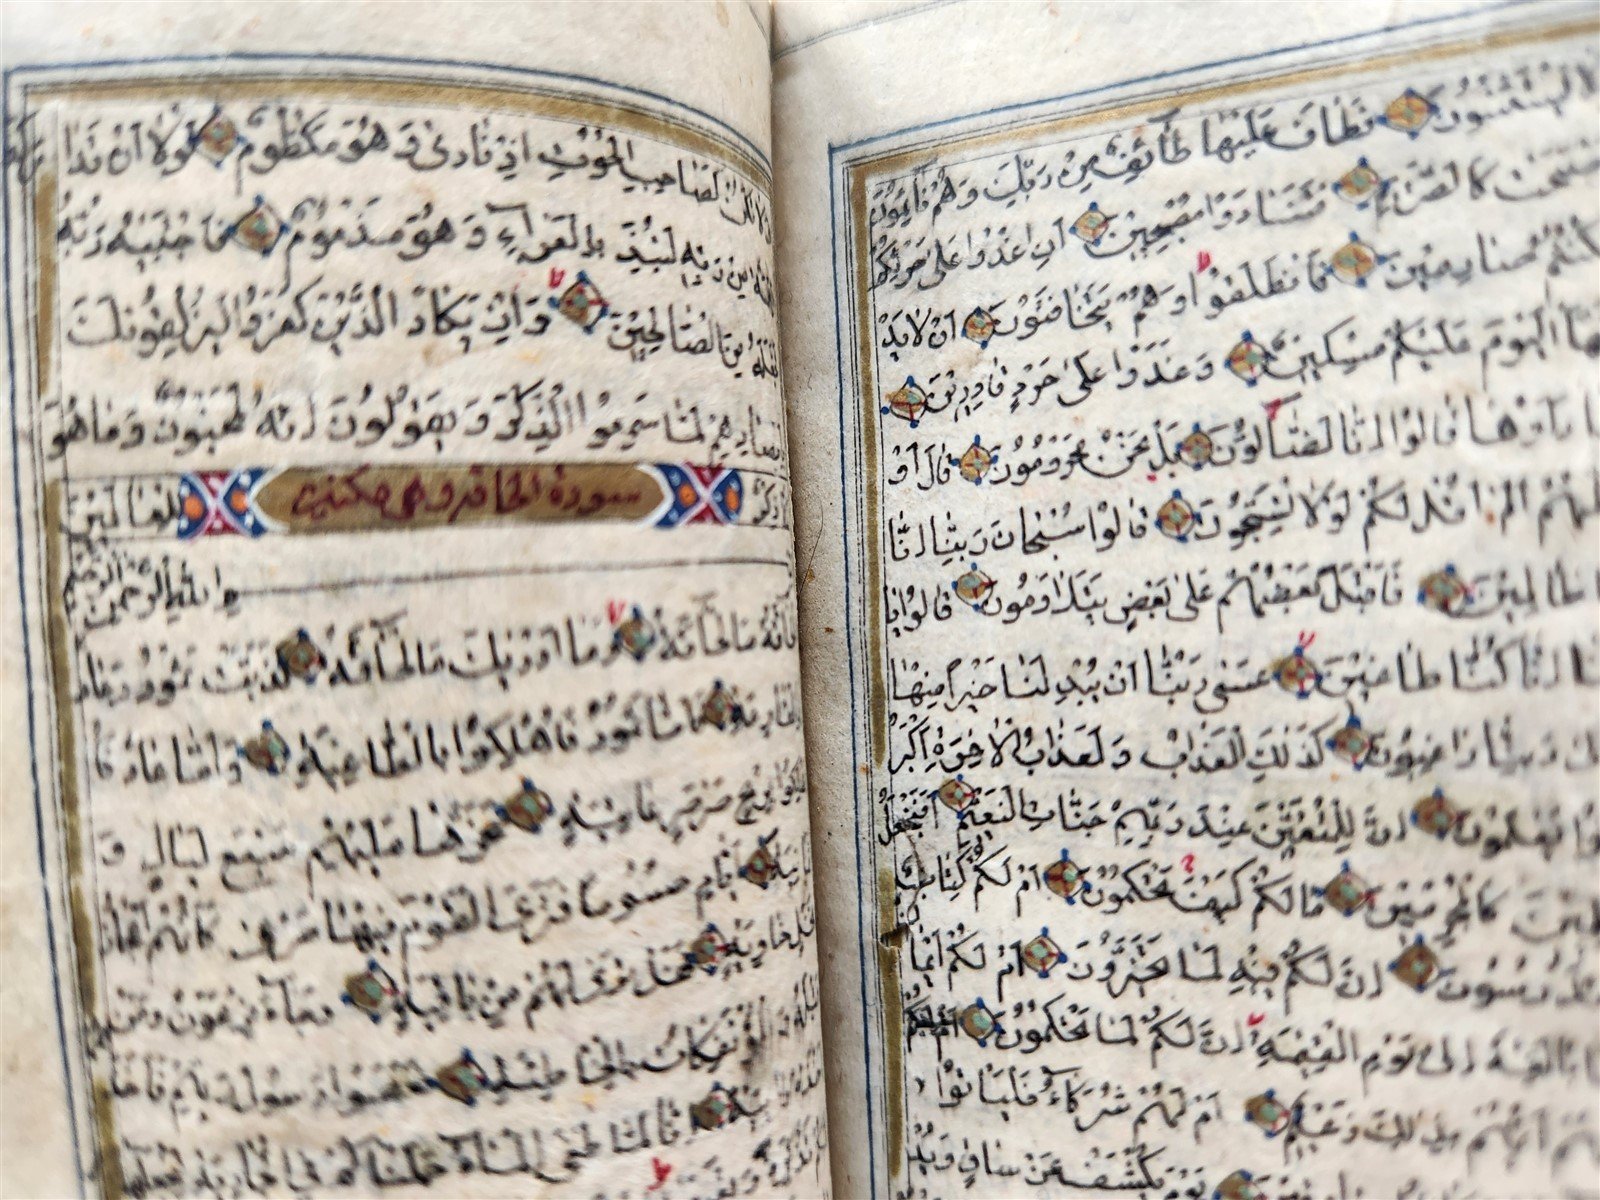 يستثنون فطاف عليها طائف من ربك وهم نائمون
كالصريم فتنادوا مصبحين ان اغدوا على حرثكم
كنتم صارمين فانطلقوا وهم يتخافتون ان لا يد
اليوم عليكم مسكين وغدوا على حرد قادرين
راوها قالوا انا لضالون بل نحن محرومون قال او
الم اقل لكم لولا تسبحون قالوا سبحان ربنا انا
ظالمين فاقبل بعضهم على بعض يتلاومون قالوا يا
انا كنا طاغين عسى ربنا ان يبدلنا خيرا منها
ربنا راغبون كذلك العذاب ولعذاب الاخرة اكبر
يعلمون ان للمتقين عند ربهم جنات النعيم افنجعل
كالمجرمين مالكم كيف تحكمون ام لكم كتاب فيه
تدرسون ان لكم فيه لما تخيرون ام لكم ايما
بالغة الى يوم القيمة ان لكم لما تحكمون
ايهم بذلك زعيم ام لهم شركاء فلياتوا
يوم يكشف عن ساق ويد
ولا تكن كصاحب الحوت اذ نادى وهو مكظوم لولا ان تدا
من ربه لنبذ بالعراء وهو مذموم فاجتبيه ربه
فجعله من الصالحين وان يكاد الذين كفروا ليزلقونك
بابصارهم لما سمعوا الذكر ويقولون انه لمجنون وما هو
ذكر للعالمين
سورة الحاقه وهى مكية
الله الرحمن الرحيم
الحاقة ما الحاقة وما ادريك ما الحاقة كذبت ثمود وعاد
بالقارعة فاما ثمود فاهلكوا بالطاغية واما عاد فا
هلكوا بريح صرصر عاتية سخرها عليهم سبع ليال و
ايام حسوما فترى القوم فيها صرعى كانهم اعجاز
نخل خاوية فهل ترى لهم من باقية وجاء فرعون ومن
قبله والمؤتفكات بالخاطئة فعصوا رسول ربهم فاخذ
رابية انا لما طغى الماء حملناكم فى الجارية لنجعلها